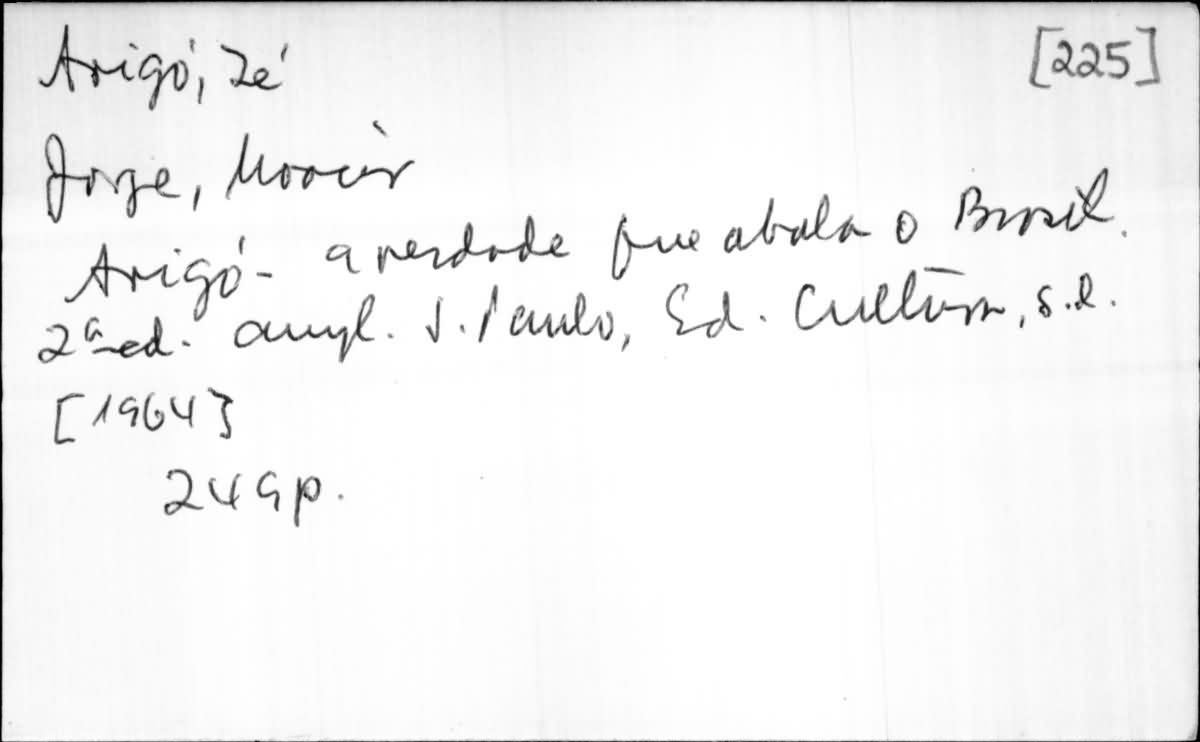 Arigó, Zé [225]
Jorge, Moacir
Arigó - a verdade que abala o Brasil.
2ª ed. ampl. S. Paulo, Ed. Cultura, s.d.
[1964]
249p.